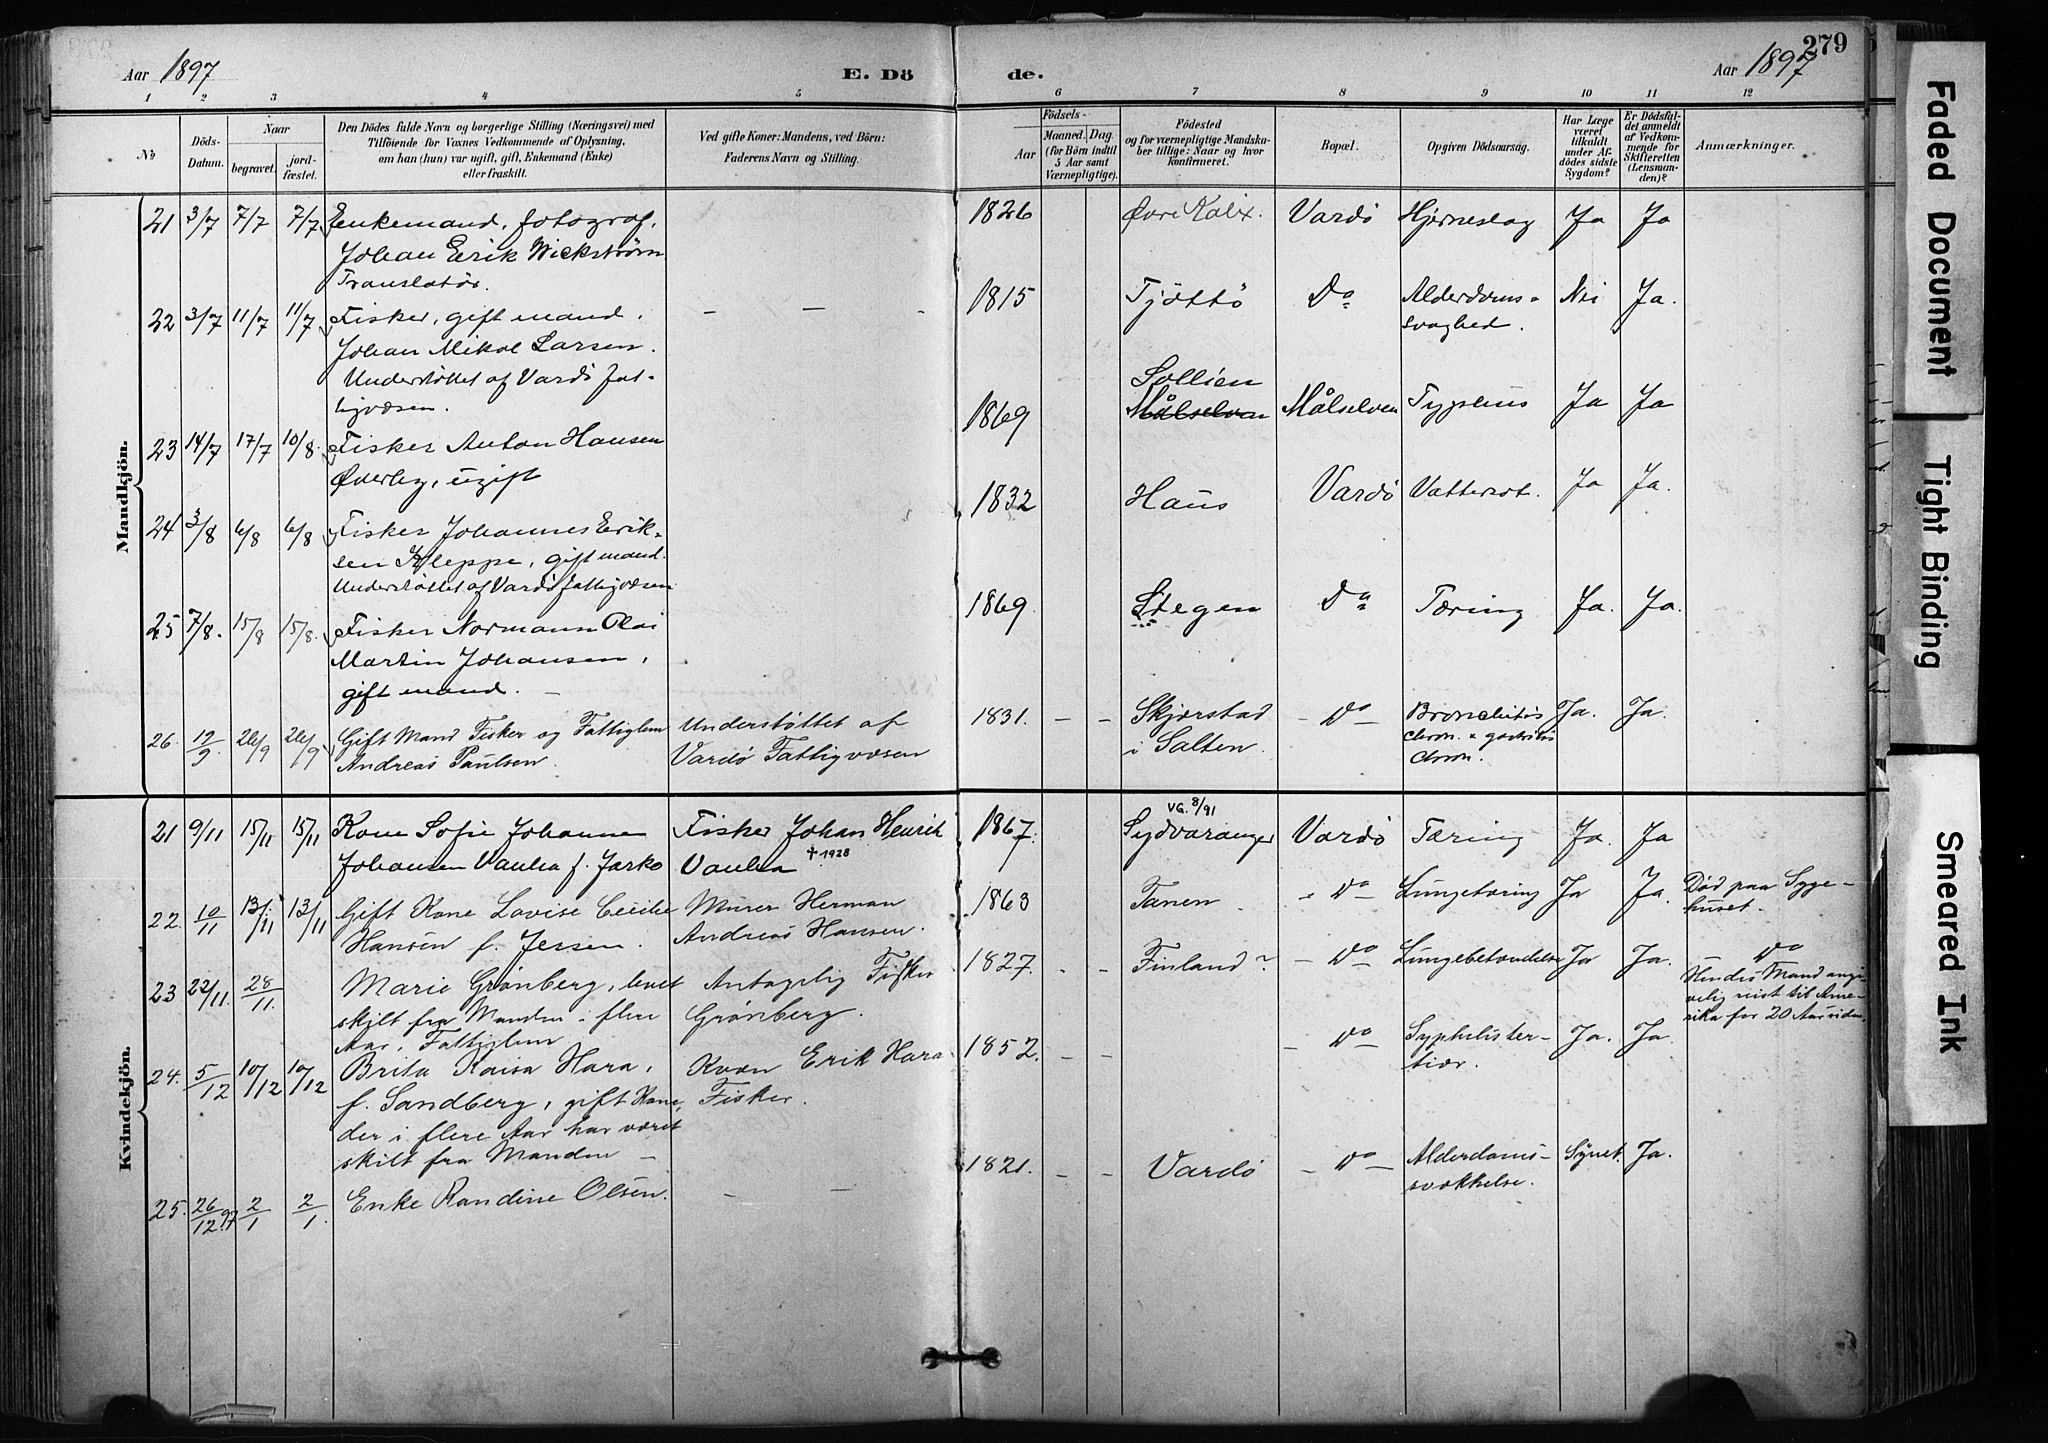 279
Aar 1897
E. Dö
de.
Aar 1897
1 2 3 4 5 6 7 8 9 10 11 12
No
Döds-
Datum.
Naar
begravet.
jord-
fæstet.
Den Dödes fulde Navn og borgerlige Stilling (Næringsvei) med
Tilföiende for Voxnes Vedkommende af Oplysning,
om han (hun) var ugift, gift, Enkemand (Enke)
eller fraskilt.
Ved gifte Koner: Mandens, ved Börn:
Faderens Navn og Stilling.
Födsels-
Aar
Maaned. Dag.
(for Börn indtil
5 Aar samt
Værnepligtige).
Födested
og for værnepligtige Mandska-
ber tillige: Naar og hvor
konfirmeret.
Bopæl.
Opgiven Dödsaarsag.
Har Læge
været
tilkaldt
under Af-
dödes sidste
Sygdom?
Er Dödsfal-
det anmeldt
af Vedkom-
mende for
Skifteretten
(Lensman-
den)?
Anmærkninger.
Mandkjön.
21 3/7 7/7 7/7 Enkemand, fotograf, 1826 Øvre Kalix. Vardö Hjerneslag Ja Ja
Johan Erik Wickström
Translatör.
22 3/7 11/7 11/7 Fisker, gift mand. — — - 1815 Tjöttö Do Alderdoms- Nei Ja.
svaghed.
Johan Mikal Larsen.
Understöttet af Vardö fat-
tigvæsen.
Sollien
23 14/7 17/7 10/8 Fisker Anton Hansen 1869 Målselven Målselven Ja Ja
Øverby, ugift
24 3/8 6/8 6/8 Fisker Johannes Erik- 1832 Haus Vardö Vattersot. Ja Ja.
sen Kleppe, gift mand.
Understöttet af Vardö fattigvæsen
25 7/8. 15/8 15/8. Fisker Normann 1869. Stegen Do Tæring Ja. Ja.
Martin Johansen,
gift mand. —
26. 19/9 26/9 26/9 Gift Mand Fisker og Fattiglem Understöttet af 1831. — - Skjærstad - Do - Bronchitis Ja. Ja.
Andreas Paulsen. Vardö Fattigvæsen i Salten. chron. & gastritis
chron.
Kvindekjön.
VG. 8/91
21 9/11 15/11 15/11 Kone Sofie Johanne Fisker Johan Henrik 1867. Sydvaranger Vardö Tæring Ja. Ja
Johansen Vanha f. Jarko Vanha †1928
22. 10/11 13/11 13/11 Gift Kone Lovise Cecilie Murer Herman 1863 Tanen - Do - Lungetæring Ja Ja. Död paa Syge-
huset.
Hansen f. Jessen. Andreas Hansen.
23 22/11. 28/11. Marie Grönberg, levet Antagelig Fisker 1827. - - Finland? - Do - Lungebetændelse Ja Ja. Do
skilt fra Manden i flere Grönberg. Hendes Mand angi-
velig reist til Ame-
rika for 20 Aar siden.
Aar, Fattiglem
24. 5/12 10/12 10/12 Brita Kaisa Hara, Kvæn Erik Hara 1852. - - - Do - Syphelis ter- Ja. Ja.
tiær.
f. Sandberg, gift Kone, Fisker.
der i flere Aar har været
skilt fra Manden —
25. 26/12.97 2/1 2/1. Enke Randine Olsen. - — 1821. - - Vardö - Do - Alderdoms- Synet. Ja.
svækkelse.
Faded Document
Tight Binding
Smeared Ink